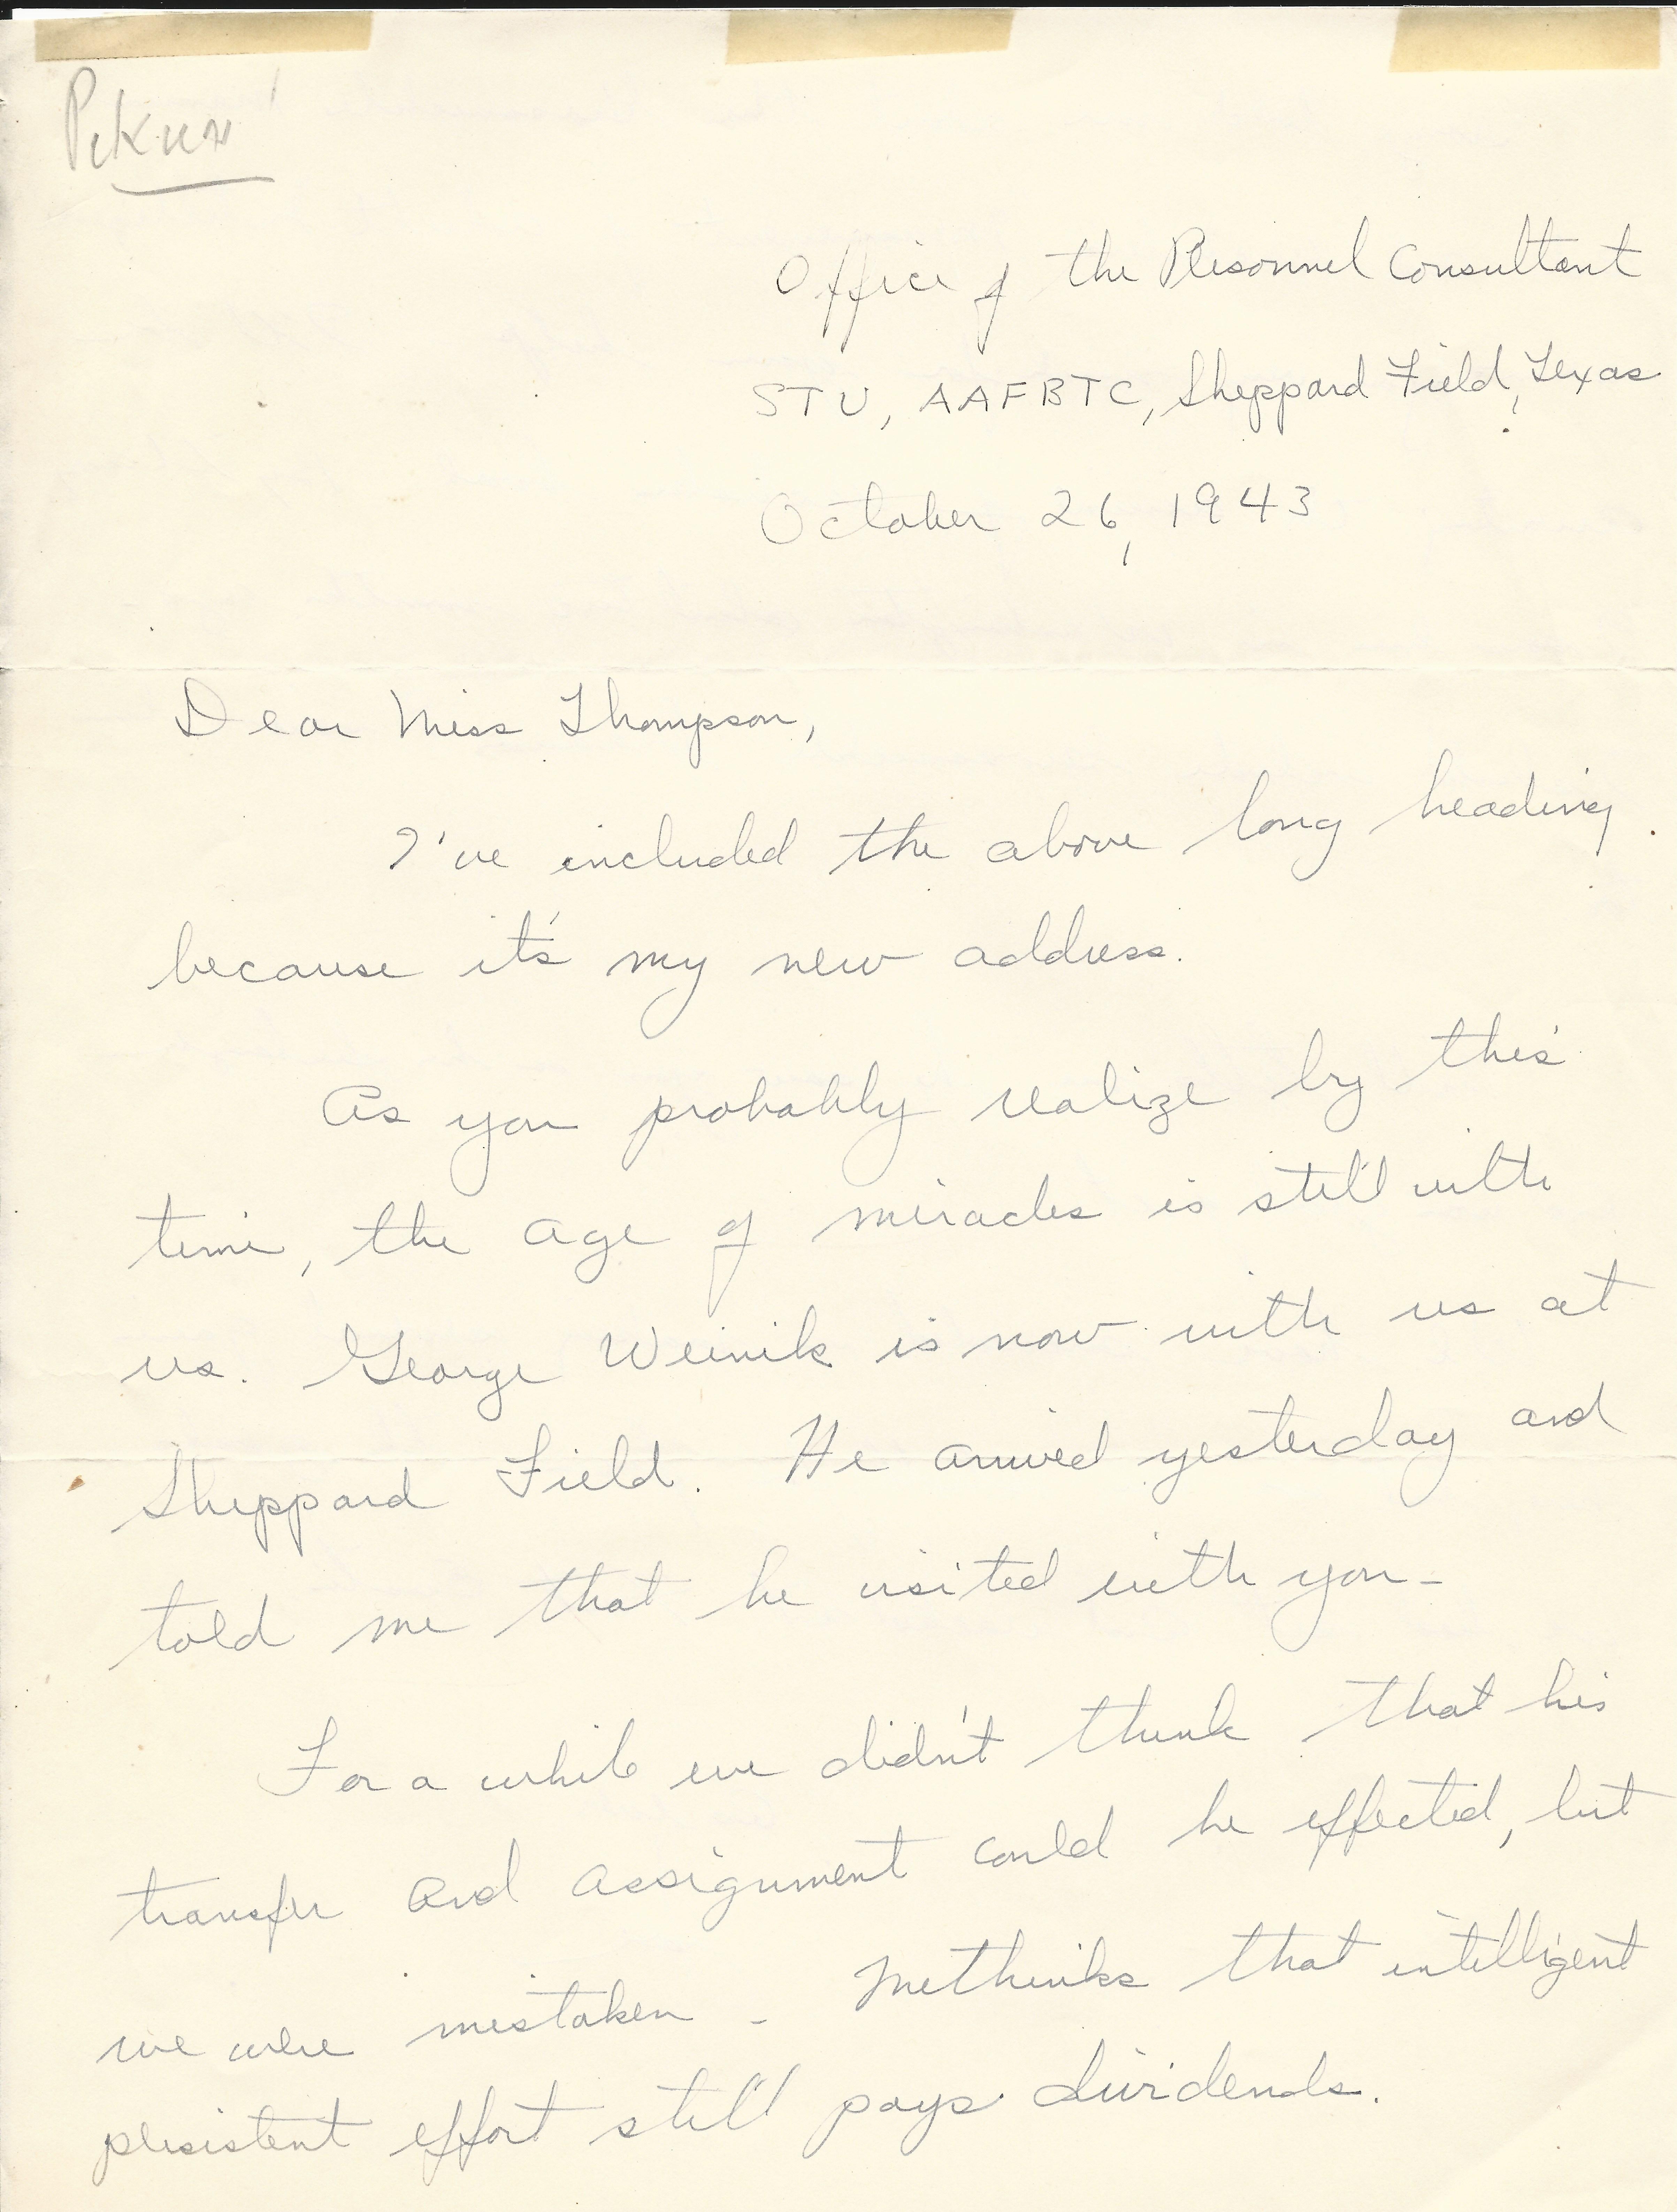 Office of the Personnel Consultant
STU, AAFBTC, Sheppard Field, Texas
October 26, 1943
Dear Miss Thompson,
I've included the above long heading
because it's my new address.
As you probably realize by this
time, the age of miracles is still with
us. George Weinik is now with us at
Sheppard Field. He arrived yesterday and
told me that he visited with you-
For a while we didn't think that his
transfer and assignment could be effected, but
we were mistaken - Methinks that intelligent
persistent effort still pays dividends.